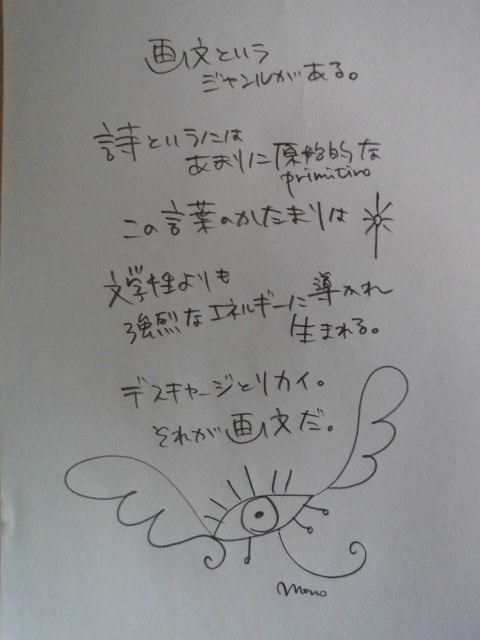 画文という
ジャンルがある。
詩というには
あまりに原始的な
primitivo
この言葉のかたまりは
文学性よりも
強烈なエネルギーに導かれ
生まれる。
デスキャージとリカイ。
それが画文だ。
mono